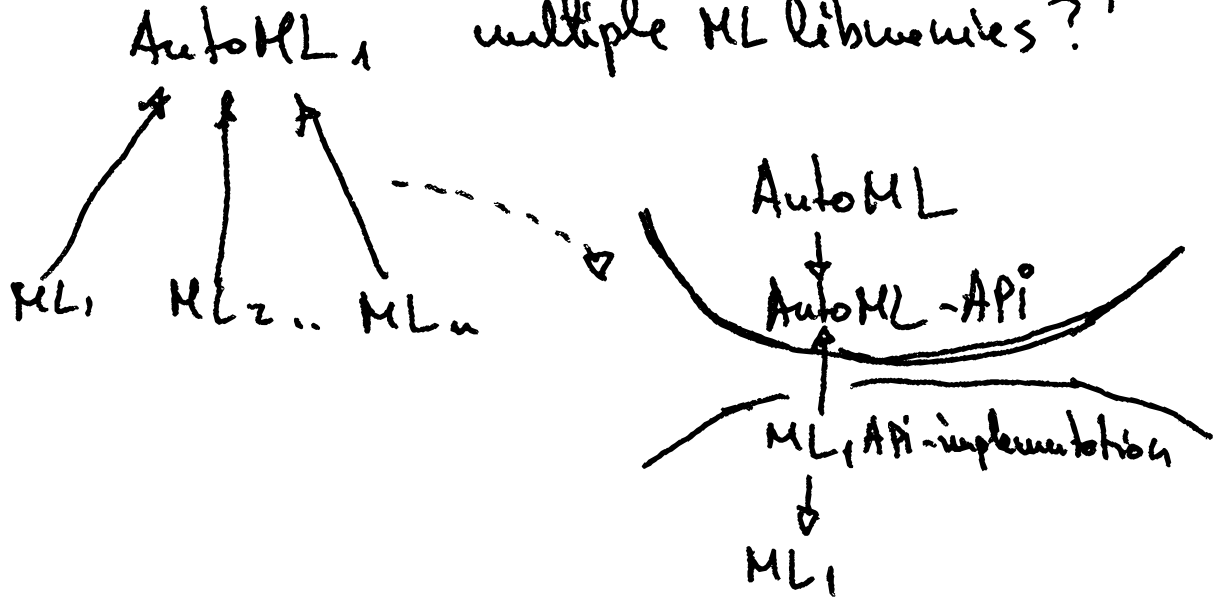 AutoML₁ multiple ML libraries?'
ML₁ ML₂ .. MLₙ
AutoML
AutoML-API
ML₁ API-implementation
ML₁